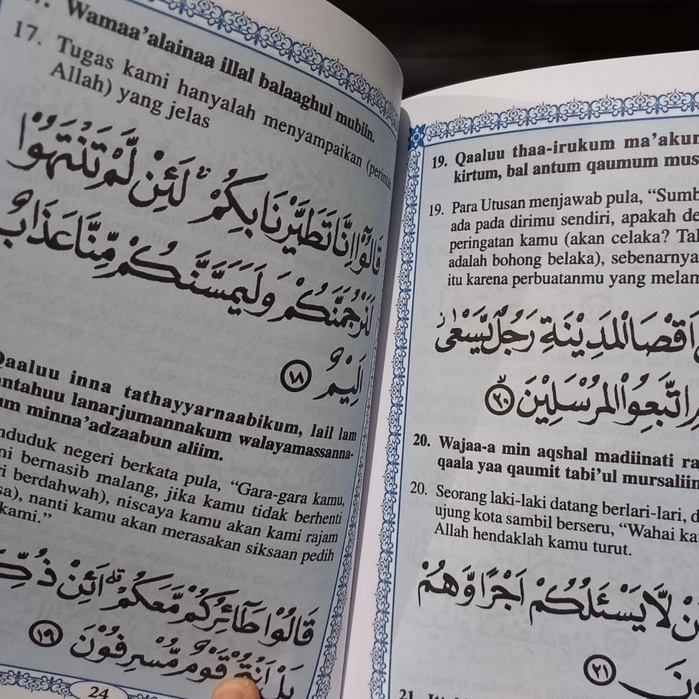 Wamaa'alainaa illal balaaghul mubiin.
17. Tugas kami hanyalah menyampaikan
Allah) yang jelas
قَالُوْٓا اِنَّا تَطَيَّرْنَا بِكُمْ لَئِنْ لَّمْ تَنْتَهُوْا
لَنَرْجُمَنَّكُمْ وَلَيَمَسَّنَّكُمْ مِّنَّا عَذَابٌ
اَلِيْمٌ ١٨
Qaaluu inna tathayyarnaabikum, lail lam
tantahuu lanarjumannakum walayamassanna-
minna'adzaabun aliim.
negeri berkata pula, "Gara-gara kamu,
bernasib malang, jika kamu tidak berhenti
berdahwah), niscaya kamu akan kami rajam
nanti kamu akan merasakan siksaan pedih
kami."
قَالُوْا طَاۤئِرُكُمْ مَّعَكُمْ اَئِنْ
قَوْمٌ مُّسْرِفُوْنَ ١٩
24
19. Qaaluu thaa-irukum ma'akum
kirtum, bal antum qaumum
19. Para Utusan menjawab pula,
ada pada dirimu sendiri, apakah
peringatan kamu (akan celaka?
adalah bohong belaka), sebenarnya
itu karena perbuatanmu yang
اَقْصَا الْمَدِيْنَةِ رَجُلٌ يَّسْعٰى
اتَّبِعُوا الْمُرْسَلِيْنَ ٢٠
20. Wajaa-a min aqshal madiinati
qaala yaa qaumit tabi'ul mursaliin
20. Seorang laki-laki datang berlari-lari,
ujung kota sambil berseru, "Wahai
Allah hendaklah kamu turut.
لَّا يَسْئَلُكُمْ اَجْرًا وَّهُمْ
٢١
21.